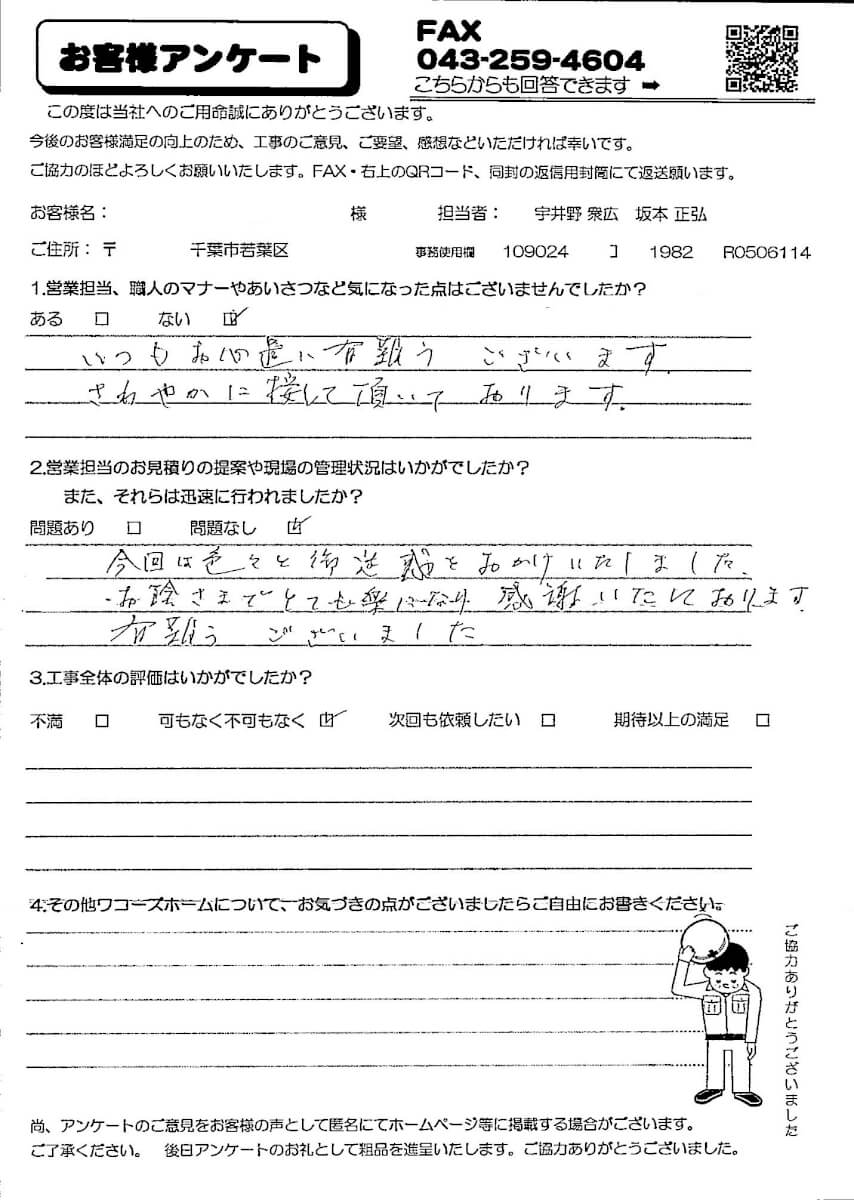 お客様アンケート
FAX
043-259-4604
こちらからも回答できます ➡
この度は当社へのご用命誠にありがとうございます。
今後のお客様満足の向上のため、工事のご意見、ご要望、感想などいただければ幸いです。
ご協力のほどよろしくお願いいたします。FAX・右上のQRコード、同封の返信用封筒にて返送願います。
お客様名： 様 担当者： 宇井野 衆広 坂本 正弘
ご住所：〒 千葉市若葉区 事務使用欄 109024 コ 1982 R0506114
1.営業担当、職人のマナーやあいさつなど気になった点はございませんでしたか？
ある □ ない ☑
いつもお心遣い有難うございます。
さわやかに接して頂いております。
2.営業担当のお見積りの提案や現場の管理状況はいかがでしたか？
また、それらは迅速に行われましたか？
問題あり □ 問題なし ☑
今回は色々と御迷惑をおかけいたしました、
お陰さまでとても楽になり 感謝いたしております
有難うございました
3.工事全体の評価はいかがでしたか？
不満 □ 可もなく不可もなく ☑ 次回も依頼したい □ 期待以上の満足 □
4.その他ワコーズホームについて、お気づきの点がございましたらご自由にお書きください。
ご協力ありがとうございました
尚、アンケートのご意見をお客様の声として匿名にてホームページ等に掲載する場合がございます。
ご了承ください。 後日アンケートのお礼として粗品を進呈いたします。ご協力ありがとうございました。